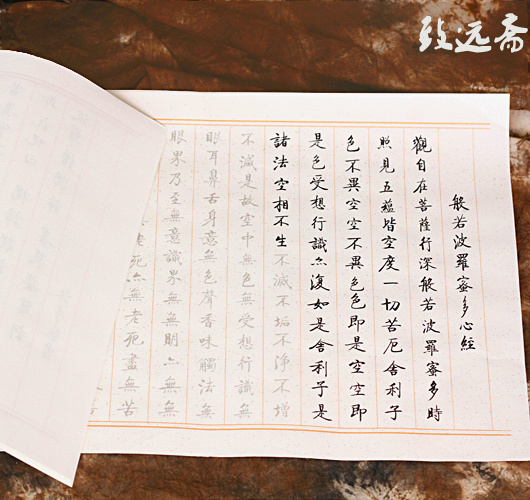 致远斋
般若波羅蜜多心經
觀自在菩薩行深般若波羅蜜多時
照見五蘊皆空度一切苦厄舍利子
色不異空空不異色色即是空空即
是色受想行識亦復如是舍利子是
諸法空相不生不滅不垢不淨不增
不減是故空中無色無受想行識無
眼耳鼻舌身意無色聲香味觸法無
眼界乃至無意識界無無明亦無無
老死亦無老死盡無苦